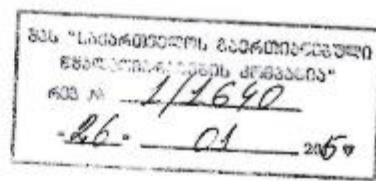 შპს "საქართველოს გაერთიანებული
წყალმომარაგების კომპანია"
რეგ № 1/1640
"26" 01 2015 წ